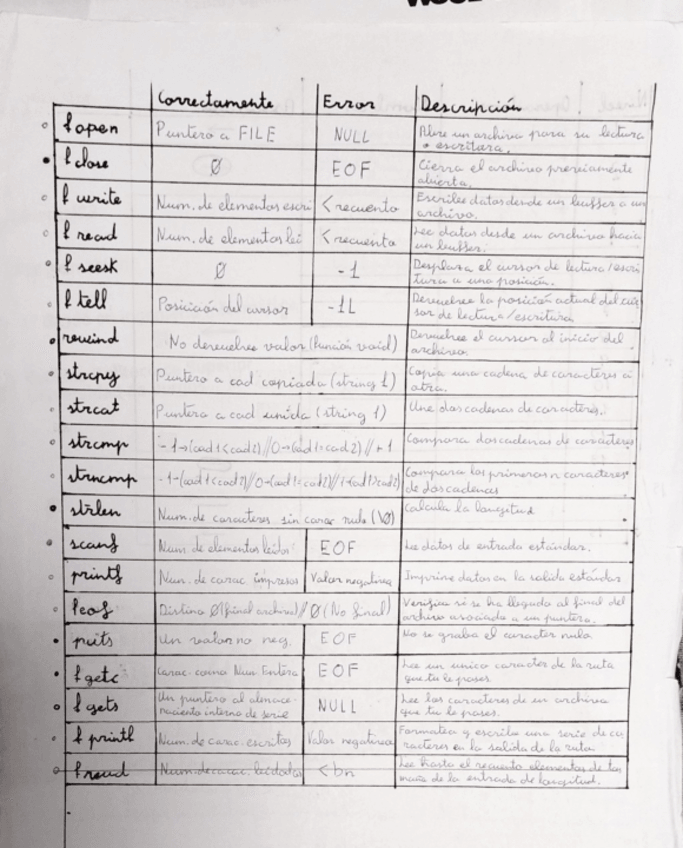 Correctamente Error Descripción
fopen Puntero a FILE NULL Abre un archivo para su lectura
o escritura.
fclose Ø EOF Cierra el archivo previamente
abierto.
fwrite Num. de elementos escri < recuento Escribe datos desde un buffer a un
archivo.
fread Num. de elementos lei < recuento Lee datos desde un archivo hacia
un buffer.
fseesk Ø -1 Desplaza el cursor de lectura/escri
tura a una posición.
ftell Posición del cursor -1L Devuelve la posición actual del cur
sor de lectura/escritura
rewind No devuelve valor (función void) Devuelve el cursor al inicio del
archivo.
strcpy Puntero a cad copiada (string 1) Copia una cadena de caracteres a
otra.
strcat Puntero a cad unida (string 1) Une dos cadenas de caracteres.
strcmp -1→(cad1<cad2)//0→(cad1=cad2)//+1 Compara dos cadenas de caracteres
strncmp Compara los primeros n caracteres
de dos cadenas
strlen Num. de caracteres sin carac nulo (\0) Calcula la longitud
scanf Num de elementos leidos EOF Lee datos de entrada estándar.
printf Num. de carac. impresos Valor negativo Imprime datos en la salida estándar
feof Distino Ø(final archivo)//Ø (No final) Verifica si se ha llegado al final del
archivo asociado a un puntero.
puts Un valor no neg. EOF No se graba el caracter nulo
fgetc Carac. como Num. Entero EOF Lee un unico caracter de la ruta
que tu le pases
fgets Un puntero al almace-
namiento interno de serie NULL Lee los caracteres de un archivo
que tu le pases.
fprintf Num. de carac. escritos Valor negativo Formatea y escribe una serie de ca
racteres en la salida de la ruta
fread Num. de carac. < bn Lee hasta el recuento elementos de ta
maño de la entrada de longitud.